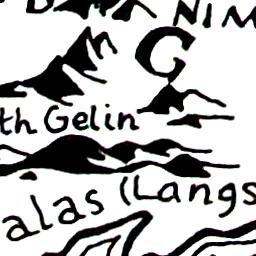 NIM
G
th Gelin
alas (Langs